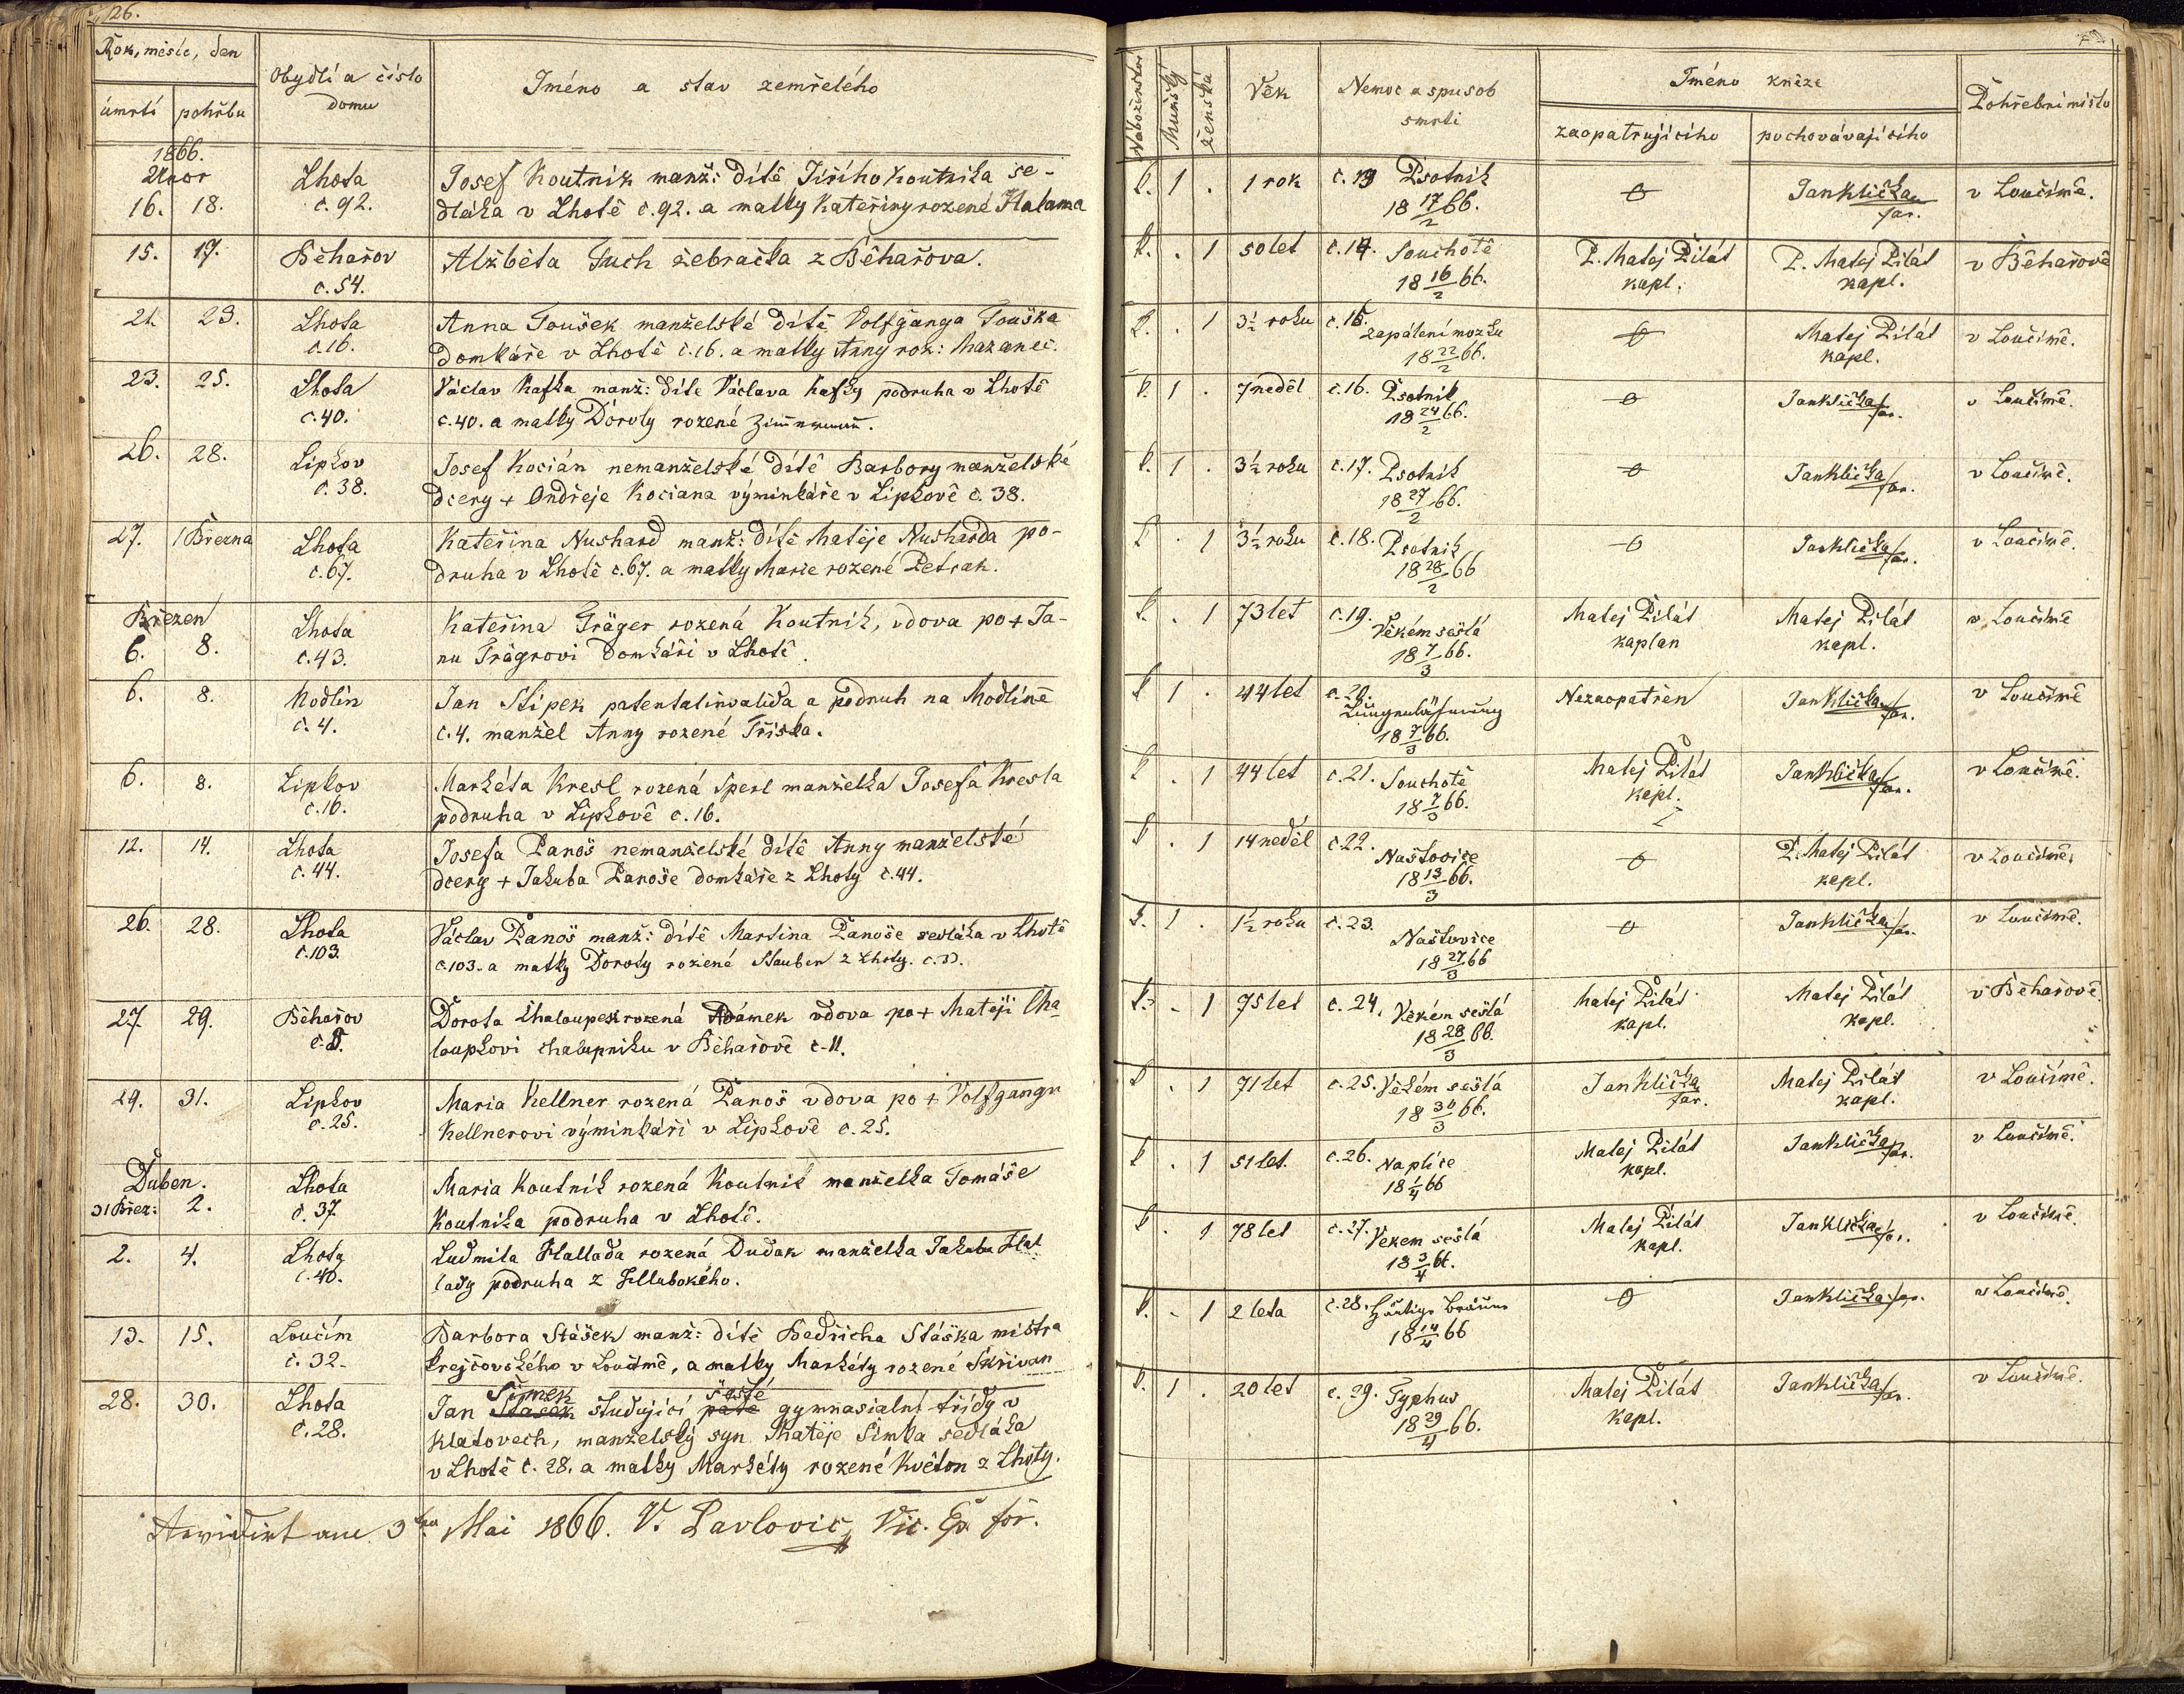 26.
Rok, měsíc, den
Obydlí a číslo
domu
Jméno a stav zemřelého
úmrtí pohřbu
1866.
Únor
16. 18. Lhota
č. 92.
Josef Koutník manž: dítě Jiřího Koutníka se-
dláka v Lhotě č. 92. a matky Kateřiny rozené Halama
15. 17. Běhařov
č. 54.
Alžběta Fuch žebračka z Běhařova.
21. 23. Lhota
č. 16.
Anna Toušek manželské dítě Volfganga Touška
domkáře v Lhotě č. 16. a matky Anny roz: Mazanec.
23. 25. Lhota
č. 40.
Václav Kafka manž: díte Václava Kafky podruha v Lhotě
č. 40. a matky Doroty rozené Zimmermann.
26. 28. Lipkov
č. 38.
Josef Kocián nemanželské dítě Barbory manželské
dcery + Ondřeje Kociana výminkáře v Lipkově č. 38.
27. 1 Března Lhota
č. 67.
Kateřina Nushard manž: dítě Matěje Nusharda po-
druha v Lhotě č. 67. a matky Marie rozené Petrak.
Březen
6. 8. Lhota
č. 43.
Kateřina Gräger rozená Koutník, vdova po + Ja-
nu Trägrovi domkáři v Lhotě.
6. 8. Modlín
č. 4.
Jan Stipek patentalinvalida a podruh na Modlíně
č. 4. manžel Anny rozené Tříska.
6. 8. Lipkov
č. 16.
Markéta Kresl rozená Sperl manželka Josefa Kresla
podruha v Lipkově č. 16.
12. 14. Lhota
č. 44.
Josefa Panoš nemanželské dítě Anny manželské
dcery + Jakuba Panoše domkáře z Lhoty č. 44.
26. 28. Lhota
č. 103.
Václav Panoš manž: dítě Martina Panoše sedláka v Lhotě
č. 103. a matky Doroty rozené Stauber z Lhoty.
27. 29. Běhařov
Dorota Chaloupek rozená Adámek vdova po + Matěji Cha-
loupkovi chalupníku v Běhařově č. 11.
29. 31. Lipkov
č. 25.
Maria Kellner rozená Panoš vdova po + Volfgangu
Kellnerovi výminkáři v Lipkově č. 25.
Duben.
31 Břez: 2. Lhota
č. 37.
Maria Koutník rozená Koutník manželka Tomáše
Koutníka podruha v Lhotě.
2. 4. Lhota
č. 40.
Ludmila Hallada rozená Dudak manželka Jakuba Hal-
lady podruha z Hlubokého.
13. 15. Loučím
č. 32.
Barbora Stášek manž: dítě Bedřicha Stáška mistra
krejčovského v Loučímě, a matky Markéty rozené Skřivan
28. 30. Lhota
č. 28.
Šimek šesté
Jan Stašek studující páté gymnasialní třídy v
Klatovech, manželský syn Matěje Šimka sedláka
v Lhotě č. 28. a matky Markéty rozené Květon z Lhoty.
Revidirt am 3ten Mai 1866. V. Pavlovic, Vic.
Náboženství
Mužský
ženská
Věk
Nemoc a spusob
smrti
Jméno kněze
zaopatrujícího pochovávajícího
Pohřební místo
k. 1 . 1 rok č. 13 Psotník
18 17/2 66.
Jan Klička
far.
v Loučímě.
k. . 1 50 let č. 14. Souchotě
18 16/2 66.
P. Matej Pilát
kapl.
P. Matej Pilát
kapl.
v Běhařově
k. . 1 3½ roku č. 15.
zapálení mozku
18 22/2 66.
Matej Pilát
kapl.
v Loučímě.
k. 1 . 7 neděl č. 16. Psotník
18 24/2 66.
Jan Klička far.
v Loučimě.
k. 1 . 3½ roku č. 17. Psotník
18 27/2 66.
Jan Klička far.
v Loučimě.
k . 1 3½ roku č. 18. Psotník
18 28/2 66
Jan Klička far.
v Loučimě.
k. . 1 73 let č. 19.
Věkém sešlá
18 7/3 66.
Matej Pilát
kaplan
Matej Pilát
kapl.
v Loučimě
k 1 . 44 let č. 20.
Lungenlähmung
18 7/3 66.
Nezaopatřen
Jan Klička far.
v Loučimě
k . 1 44 let č. 21. Souchotě
18 7/3 66.
Matej Pilát
kapl.
Jan Klička far.
v Loučimě.
k . 1 14 neděl č. 22.
Naštovice
18 13/3 66.
P. Matej Pilát
kapl.
v Loučimě.
k. 1 . 1½ roku č. 23.
Naštovice
18 27/3 66
Jan Klička far.
v Loučimě.
k. . 1 75 let č. 24. Věkém sešlá
18 28/3 66.
Matej Pilát
kapl.
Matej Pilát
kapl.
v Běhařově.
k . 1 71 let č. 25. Věkém sešlá
18 30/3 66.
Jan Klička
far.
Matej Pilát
kapl.
v Loučímě.
k . 1 51 let. č. 26. Na plíce
18 1/4 66
Matej Pilát
kapl.
Jan Klička far.
v Loučimě.
k . 1 78 let č. 27. Vekem sešlá
18 3/4 66.
Matej Pilát
kapl.
Jan Klička far.
v Loučimě.
k. . 1 2 leta č. 28. Häutige Bräune
18 14/4 66
Jan Klička far.
v Loučimě.
k. 1 . 20 let č. 29. Typhus
18 29/4 66.
Matej Pilát
kapl.
Jan Klička far.
v Loučimě.